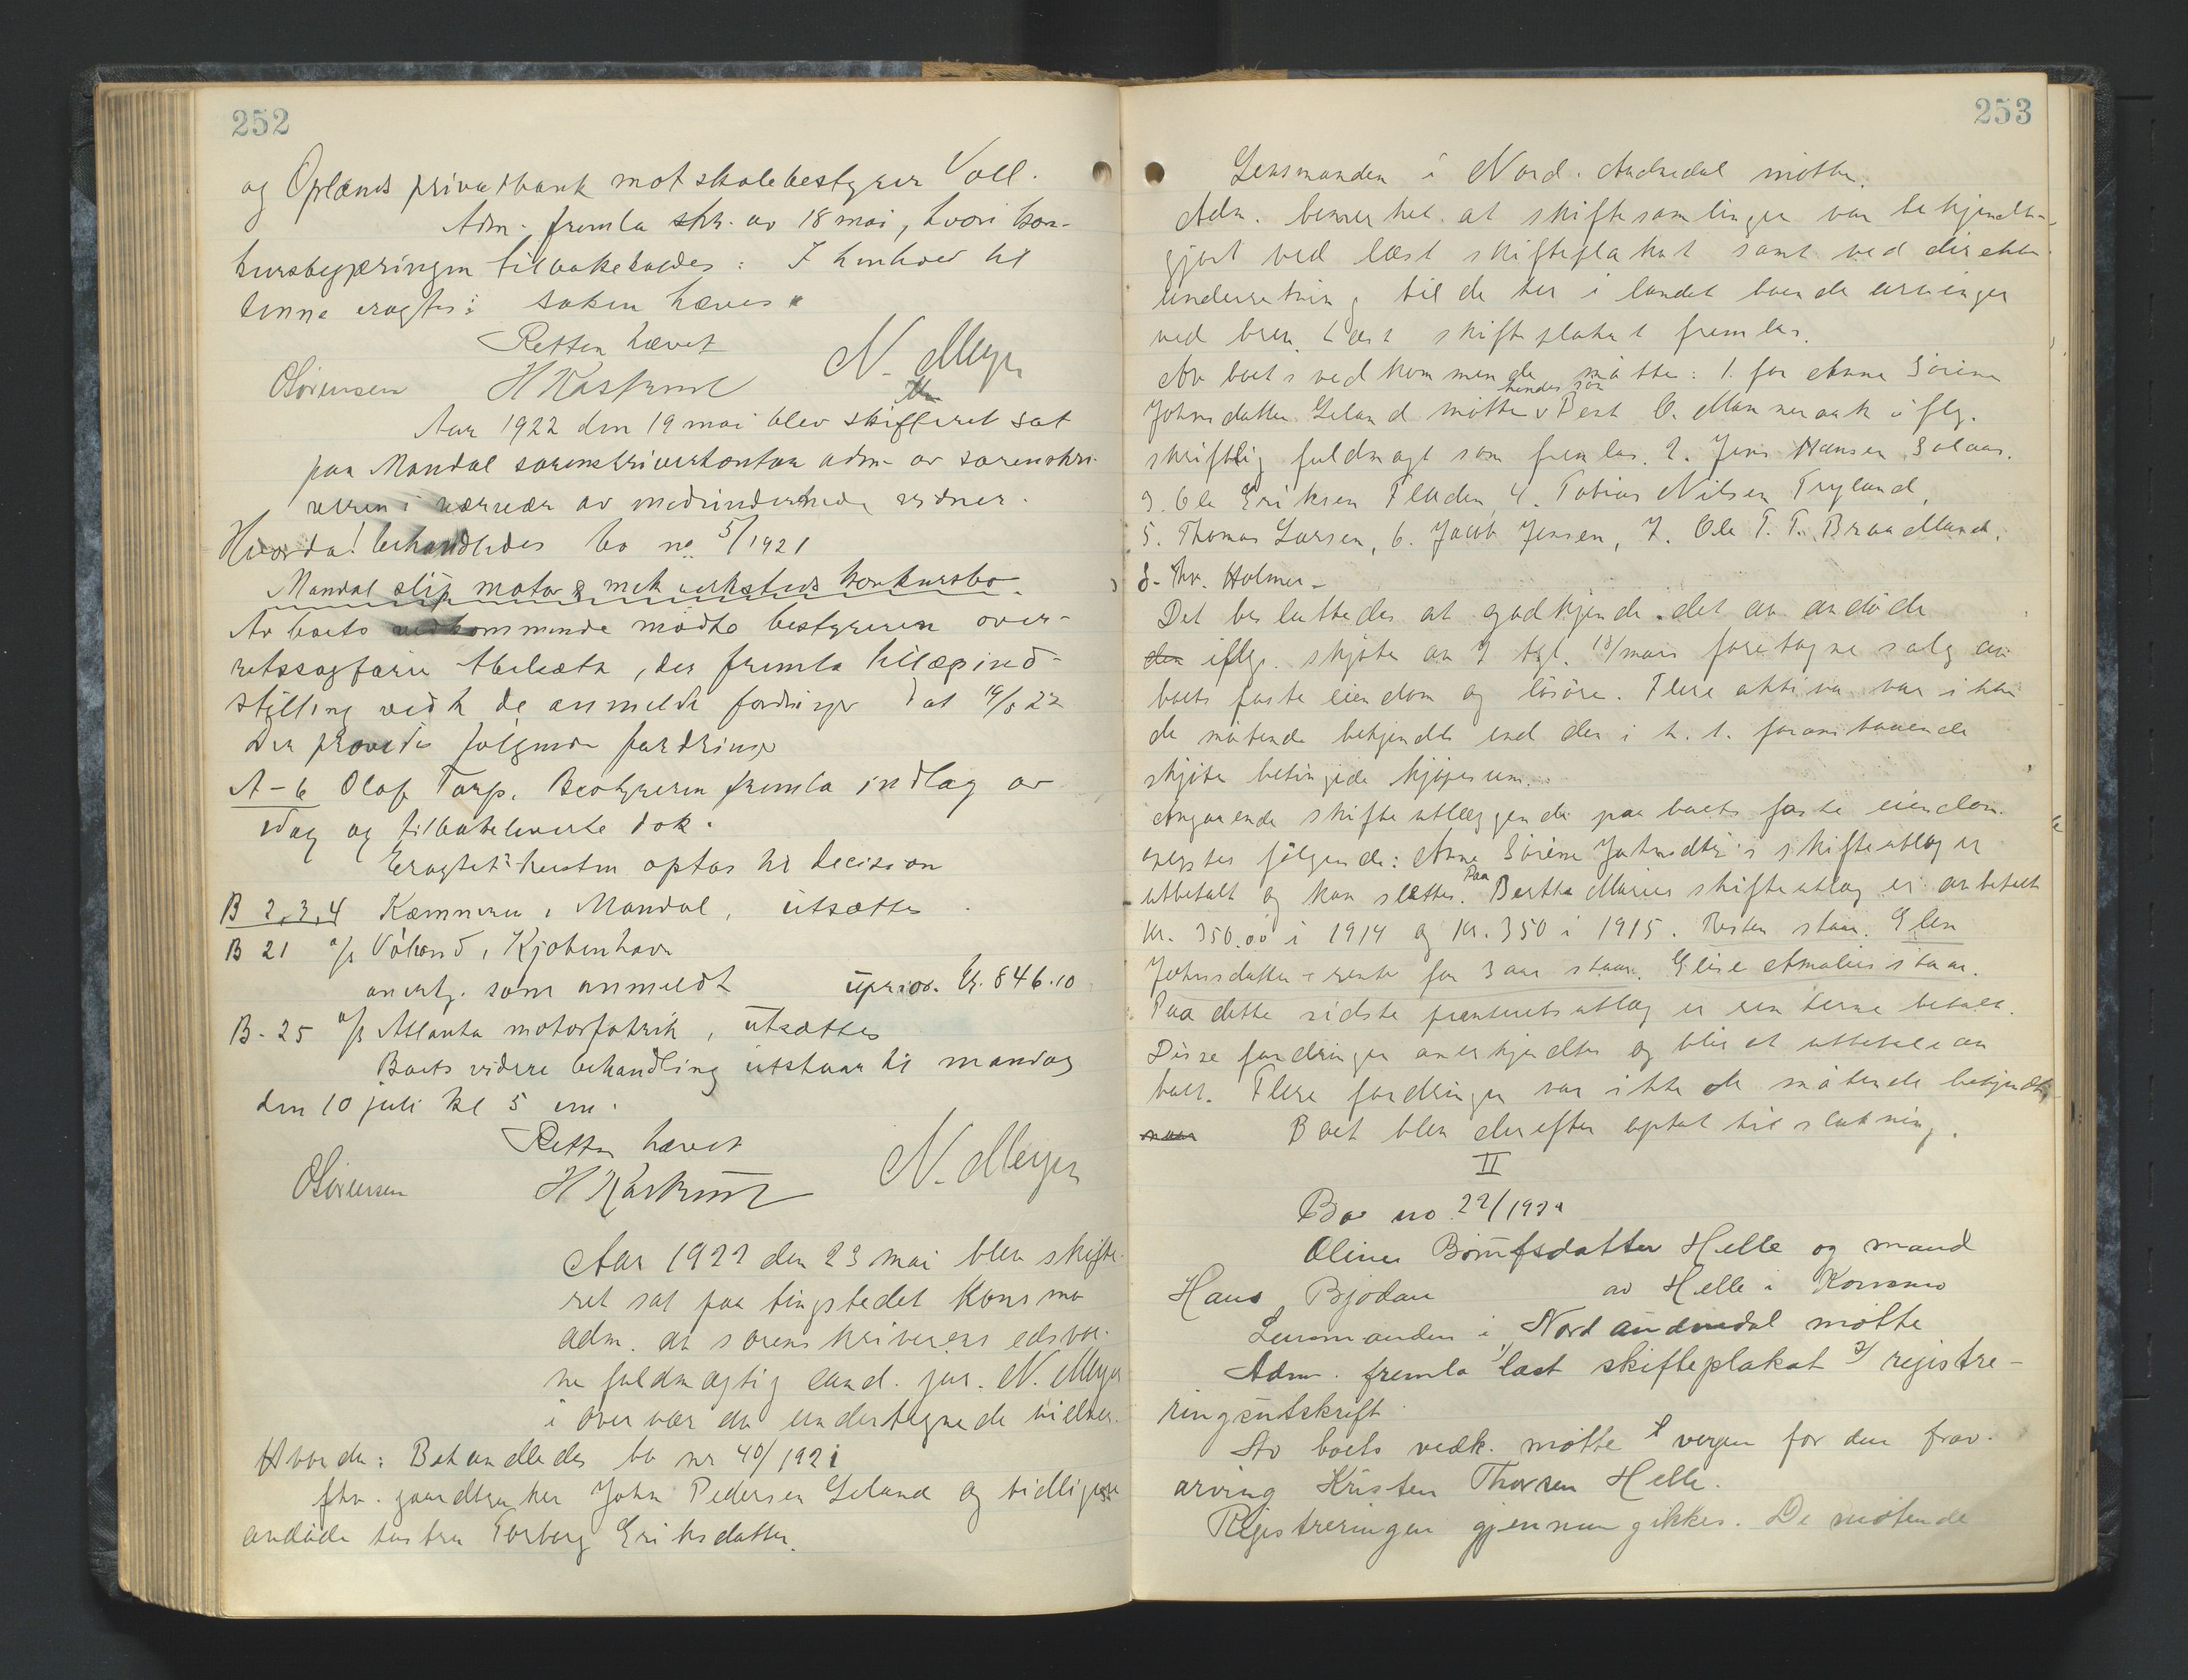 252
og Oplands privatbank mot skolebestyrer Voll.
Adm. fremla skr. av 18 mai, hvori kon-
kursbegjæringen tilbakekaldes: I henhold til
denne eragtes: saken hæves.
Retten hævet
OSørensen H Kaskrud N. Meyer
Aar 1922 den 19 mai blev skifteret sat
paa Mandal sorenskriverkontor adm. av sorenskri-
veren i nærvær av medundertegnede vidner.
Hvorda! behandledes bo no. 5/1921
Mandal slip motor & mek verksteds konkursbo.
Av boets vedkommende mødte bestyreren over-
retssagfører, der fremla tillægsind-
stilling vedk de anmeldte fordringer dat 19/5 22
Der prøvedes følgende fordringer
A-6 Olaf Tarp. Bestyreren fremla indlæg av
idag og tilbakeleverte dok.
Eragtet: tvisten optas til decision
B 2, 3, 4 Kæmneren i Mandal, utsættes.
B 21 a/s Vølund, Kjøbenhavn
anerkj. som anmeldt uprior. kr. 846.10
B-25 a/s Atlanta motorfabrik, utsættes
Boets videre behandling utstaar til mandag
den 10 juli kl 5 em.
Retten hævet
OSørensen H Kaskrud N. Meyer
Aar 1922 den 23 mai blev skifte-
ret sat paa tingstedet Konsmo
adm. av sorenskriverens edsvor-
ne fuldmægtig cand. jur. N. Meyer
i overvær av undertegnede vidner.
Hvorda: Behandledes bo nr 40/1921
fhv. gaardbruker John Pedersen Leland og tidligere
avdøde hustru Torborg Eriksdatter.
253
Lensmanden i Nord-Audnedal møtte.
Adm. bemerket at skiftesamlingen var bekjendt-
gjort ved læst skifteplakat samt ved direkte
underretning til de her i landet boende arvinger
ved brev. Læst skifteplakat fremlas.
Av boets vedkommende møtte: 1. for Anne Sørine
Johnsdatter Leland møtte hendes søn O. Mannseraak iflg.
skriftlig fuldmagt som fremlas. 2. Jens Hansen Solaas.
3. Ole Eriksen Fladen, 4. Tobias Nilsen Tryland,
5. Thomas Larsen, 6. Jacob Jensen, 7. Ole T. T. Braadland,
8. Thv. Holmer.
Det besluttedes at godkjende det av avdøde
iflg. skjøte av 7 tgl. 18/mars foretagne salg av
boets faste eiendom og løsøre. Flere aktiva var ikke
de møtende bekjendt end den i h. t. foranstaaende
skjøte betingede kjøpesum.
Angaaende skifteutlæggende paa boets faste eiendom
oplystes følgende: Anne Sørine Johnsdtr's skifteutlæg er
utbetalt og kan slettes. Paa Berthe Maries skifteutlæg er avbetalt
kr. 350.00 i 1914 og kr. 350 i 1915. Resten staar. Elen
Johnsdatter - rente for 3 aar staar. Elise Amalies staar.
Paa dette sidste panterets utlæg er renterne betalt.
Disse fordringer anerkjendtes og blir at utbetale av
boet. Flere fordringer var ikke de møtende bekjendt
Boet blev derefter optat til slutning.
II
Bo no 22/1922
Oline Børufsdatter Helle og mand
Hans Bjodan av Helle i Konsmo
Lensmanden i Nord audnedal møtte
Adm. fremla 1/ læst skifteplakat 2/ registre-
ringsutskrift.
Av boets vedk. møtte vergen for den frav.
arving Kristen Thorsen Helle.
Registreringen gjennemgikkes. De møtende